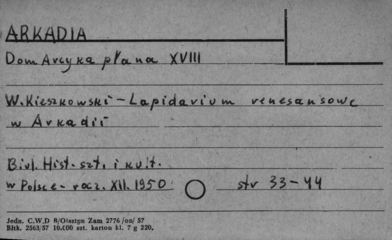 ARKADIA
Dom Arcyka płana XVIII
W. Kieszkowski – Lapidarium renesansowe
w Arkadii
Biul. Hist. szt. i kult.
w Polsce – rocz. XII. 1950 str 33–44
Jedn. C.W.D 8/Olsztyn Zam 2776/na/ 57
Bltk. 2563/57 10.000 szt. karton kl. 7 g 220.